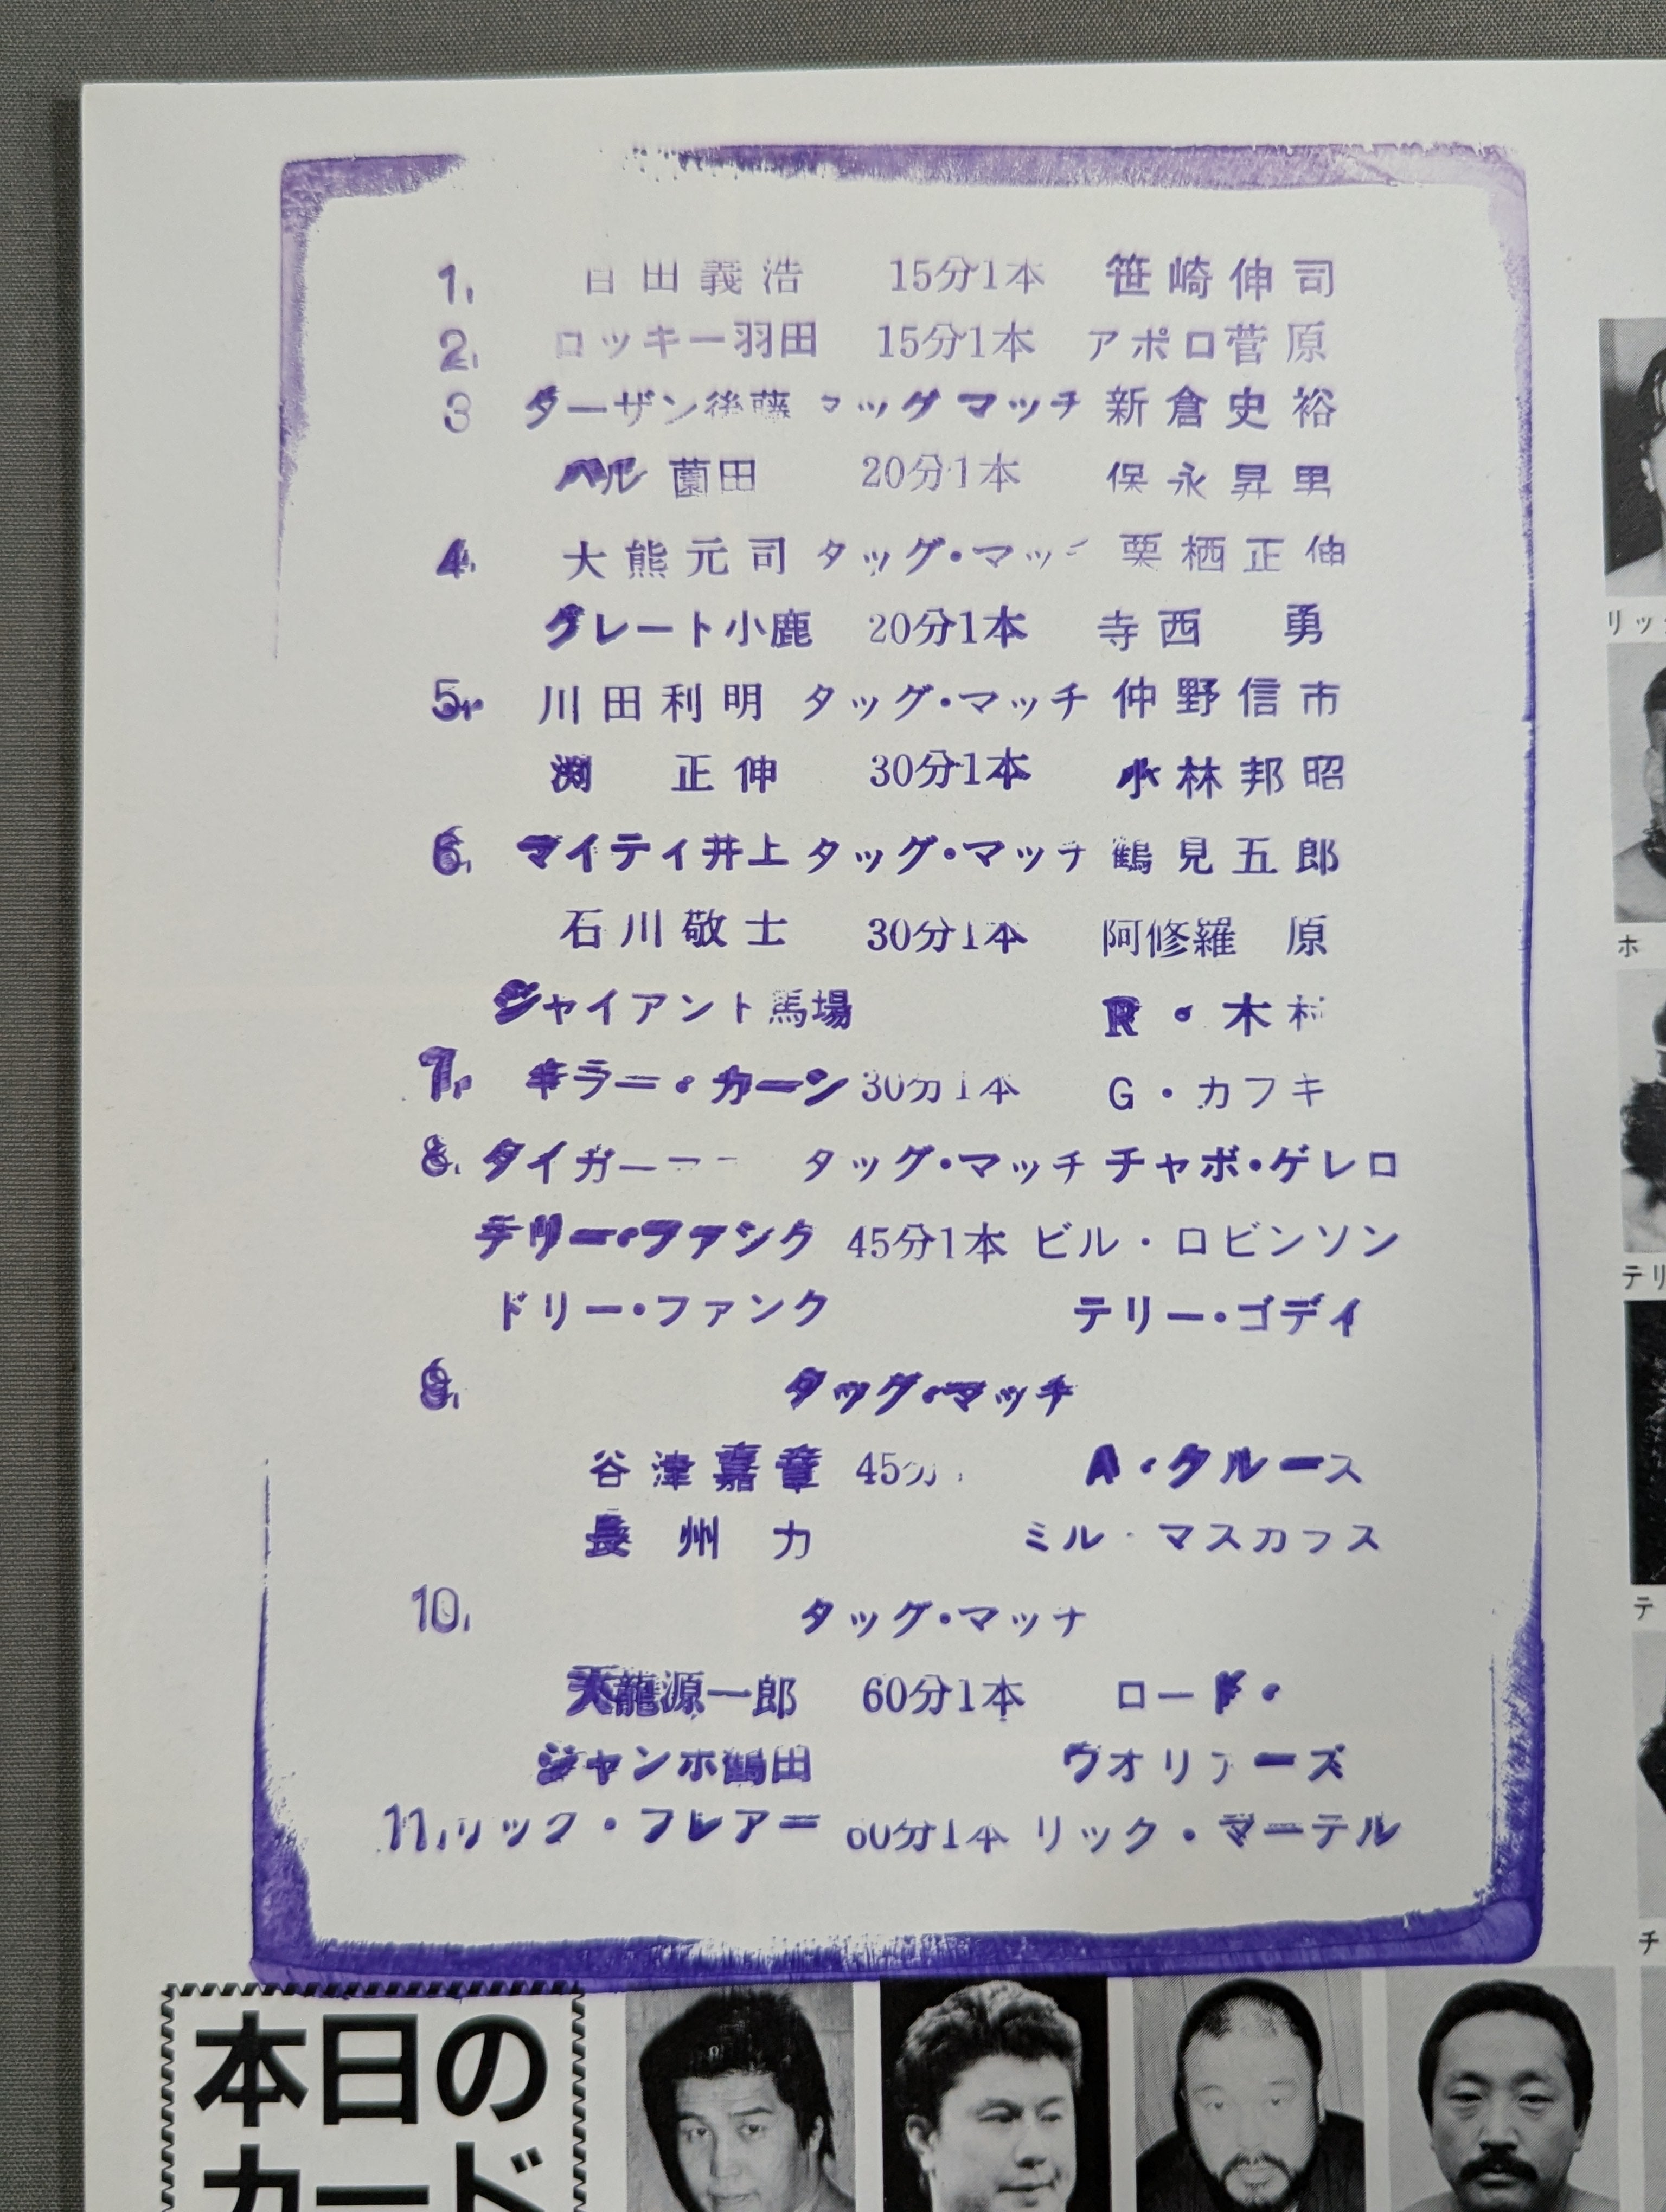 1. 百田義浩 15分1本 笹崎伸司
2. ロッキー羽田 15分1本 アポロ菅原
3 ターザン後藤 タッグマッチ 新倉史裕
ハル薗田 20分1本 保永昇男
4. 大熊元司 タッグ・マッチ 栗栖正伸
グレート小鹿 20分1本 寺西 勇
5. 川田利明 タッグ・マッチ 仲野信市
渕 正伸 30分1本 小林邦昭
6. マイティ井上 タッグ・マッチ 鶴見五郎
石川敬士 30分1本 阿修羅 原
ジャイアント馬場 R・木村
7. キラー・カーン 30分1本 G・カブキ
8. タイガー タッグ・マッチ チャボ・ゲレロ
テリー・ファンク 45分1本 ビル・ロビンソン
ドリー・ファンク テリー・ゴデイ
9. タッグ・マッチ
谷津嘉章 45分 A・クルース
長州 力 ミル・マスカラス
10. タッグ・マッチ
天龍源一郎 60分1本 ロード・
ジャンボ鶴田 ウオリアーズ
11. リック・フレアー 60分1本 リック・マーテル
本日の
カード
リッ
ホ
テリ
テ
チ